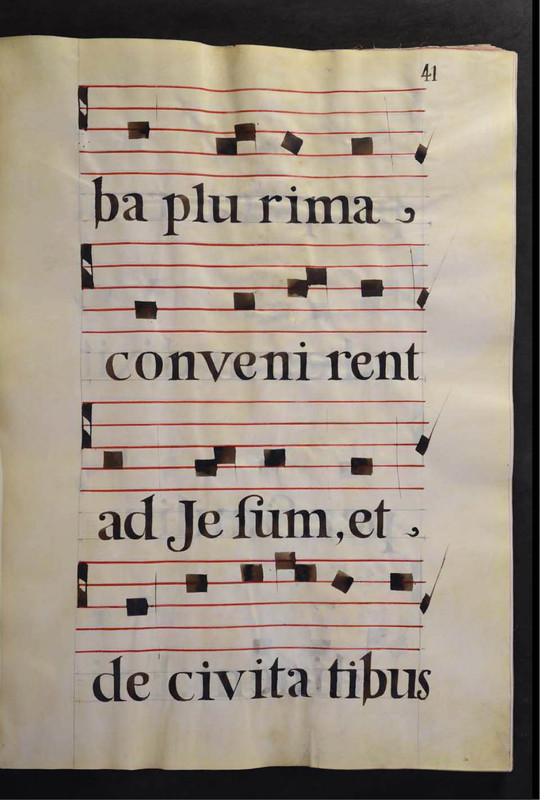 41
ba plu rima ,
conveni rent
ad Je ſum, et ,
de civita tibus